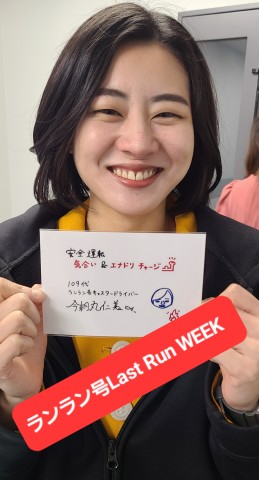 安全運転
気合い & エナドリ チャージ
109代
ランラン号キャスタードライバー
ランラン号Last Run WEEK